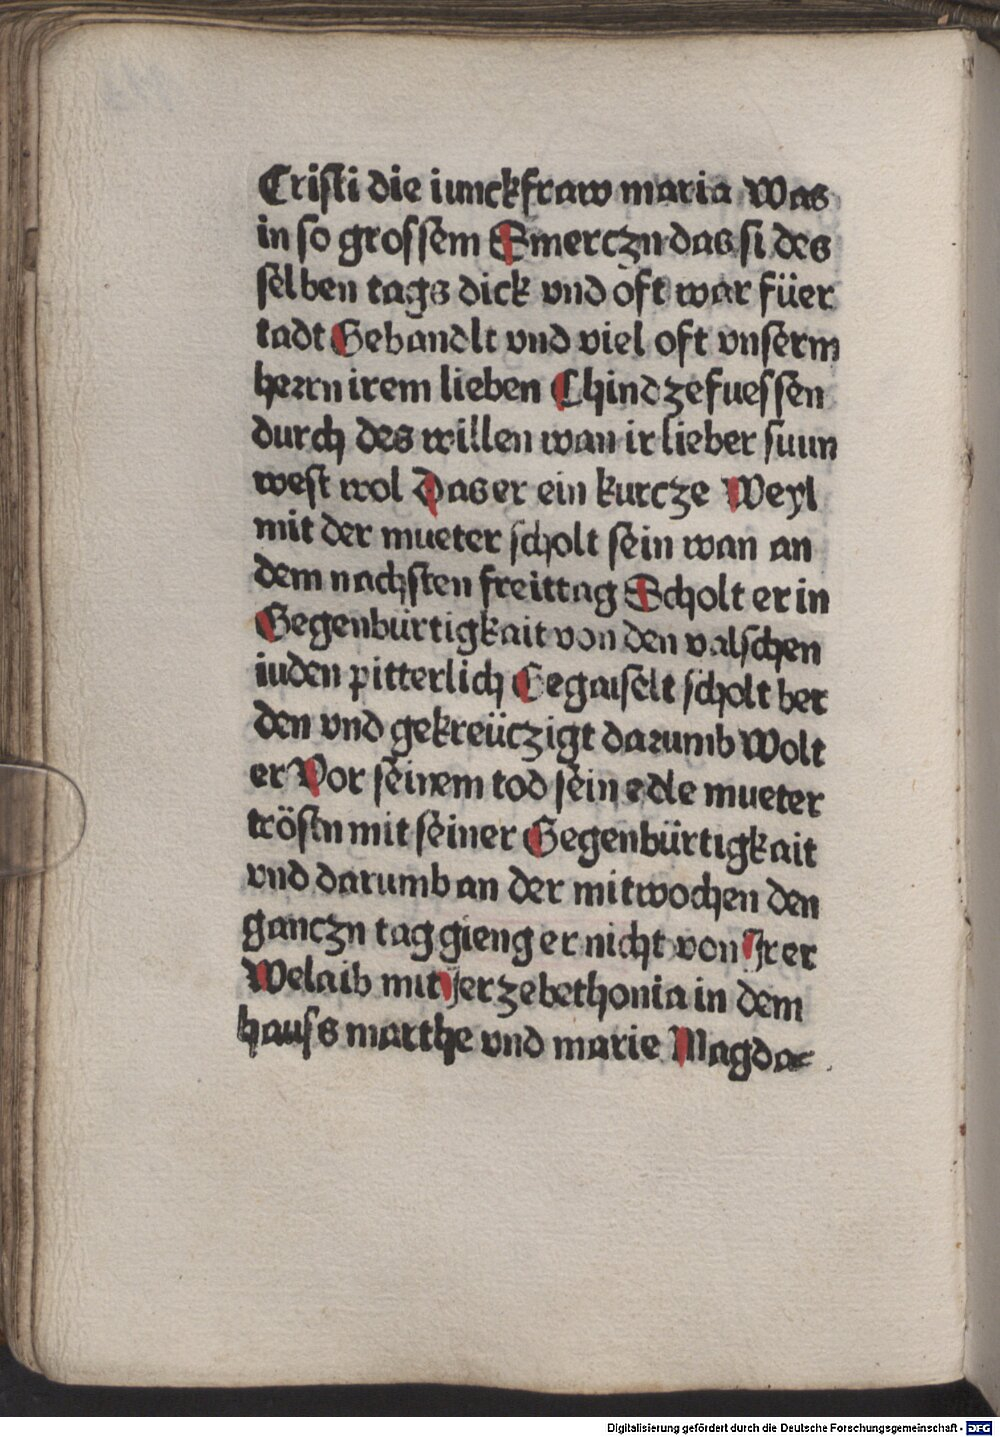 Cristi die iunckfraw maria Was
in so grossem Smerczn das si des
selben tags dick vnd oft war füer
tadt Gehandlt vnd viel oft vnserm
herrn irem lieben Chind ze fuessen
durch des willen wan ir lieber suun
west wol Das er ein kurcze Weyl
mit der mueter scholt sein wan an
dem nachsten freittag Scholt er in
Gegenbürtigkait von den valschen
iuden pitterlich Gegaiselt scholt ber
den vnd gekreüczigt darumb Wolt
er Vor seinem tod sein edle mueter
tröstn mit seiner Gegenbürtigkait
vnd darumb an der mitwochen den
ganczn tag gieng er nicht von Jr er
Welaib mit Jer ze bethonia in dem
hauss marthe vnd marie Magda=
Digitalisierung gefördert durch die Deutsche Forschungsgemeinschaft - DFG